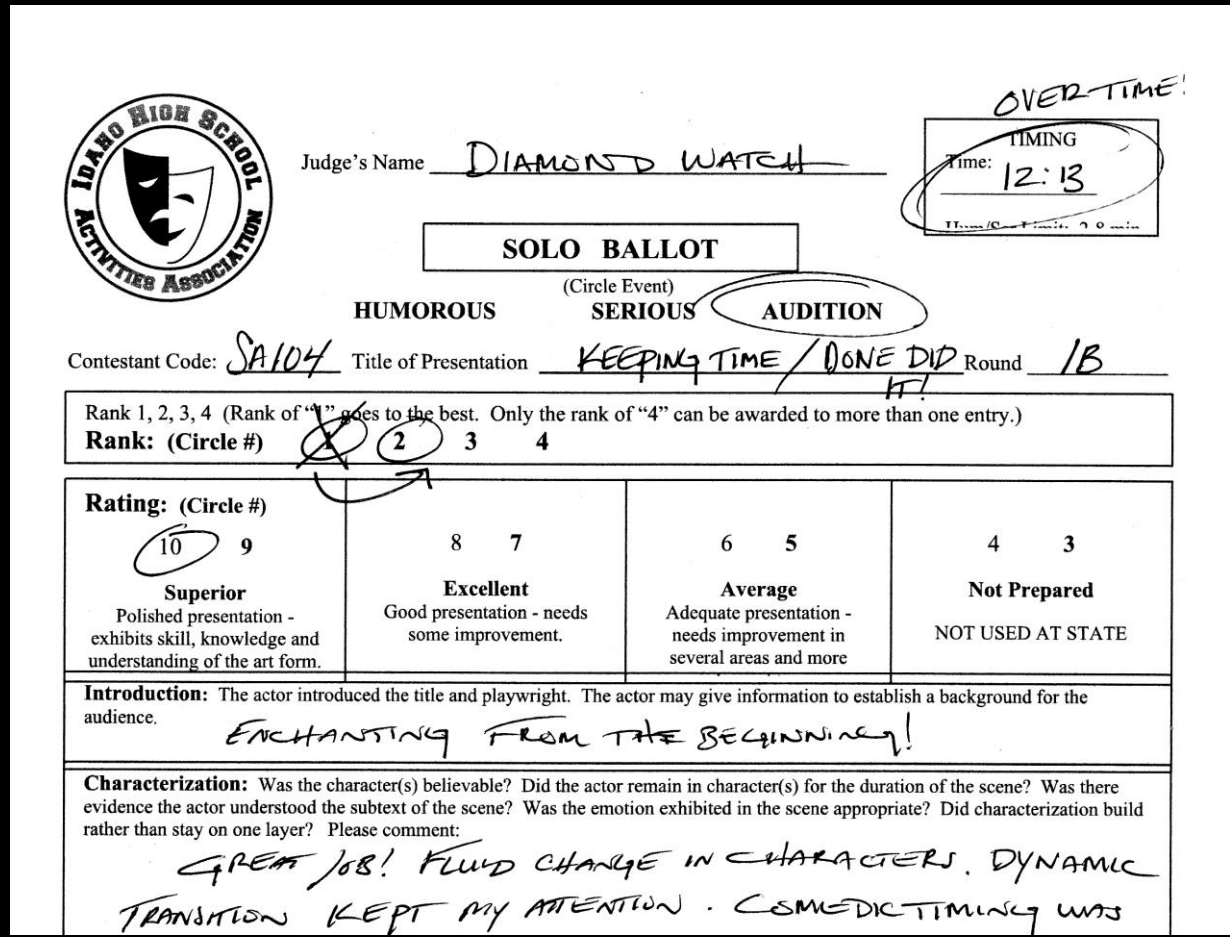 OVER TIME!
IDAHO HIGH SCHOOL
ACTIVITIES ASSOCIATION
Judge's Name DIAMOND WATCH
TIMING
Time: 12:13
SOLO BALLOT
(Circle Event)
HUMOROUS SERIOUS AUDITION
Contestant Code: SA104 Title of Presentation KEEPING TIME / DONE DID Round 1B
IT!
Rank 1, 2, 3, 4 (Rank of "1" goes to the best. Only the rank of "4" can be awarded to more than one entry.)
Rank: (Circle #) 1 2 3 4
Rating: (Circle #)
10 9
Superior
Polished presentation -
exhibits skill, knowledge and
understanding of the art form.
8 7
Excellent
Good presentation - needs
some improvement.
6 5
Average
Adequate presentation -
needs improvement in
several areas and more
4 3
Not Prepared
NOT USED AT STATE
Introduction: The actor introduced the title and playwright. The actor may give information to establish a background for the
audience.
ENCHANTING FROM THE BEGINNING!
Characterization: Was the character(s) believable? Did the actor remain in character(s) for the duration of the scene? Was there
evidence the actor understood the subtext of the scene? Was the emotion exhibited in the scene appropriate? Did characterization build
rather than stay on one layer? Please comment:
GREAT JOB! FLUID CHANGE IN CHARACTERS. DYNAMIC
TRANSITION KEPT MY ATTENTION. COMEDIC TIMING WAS